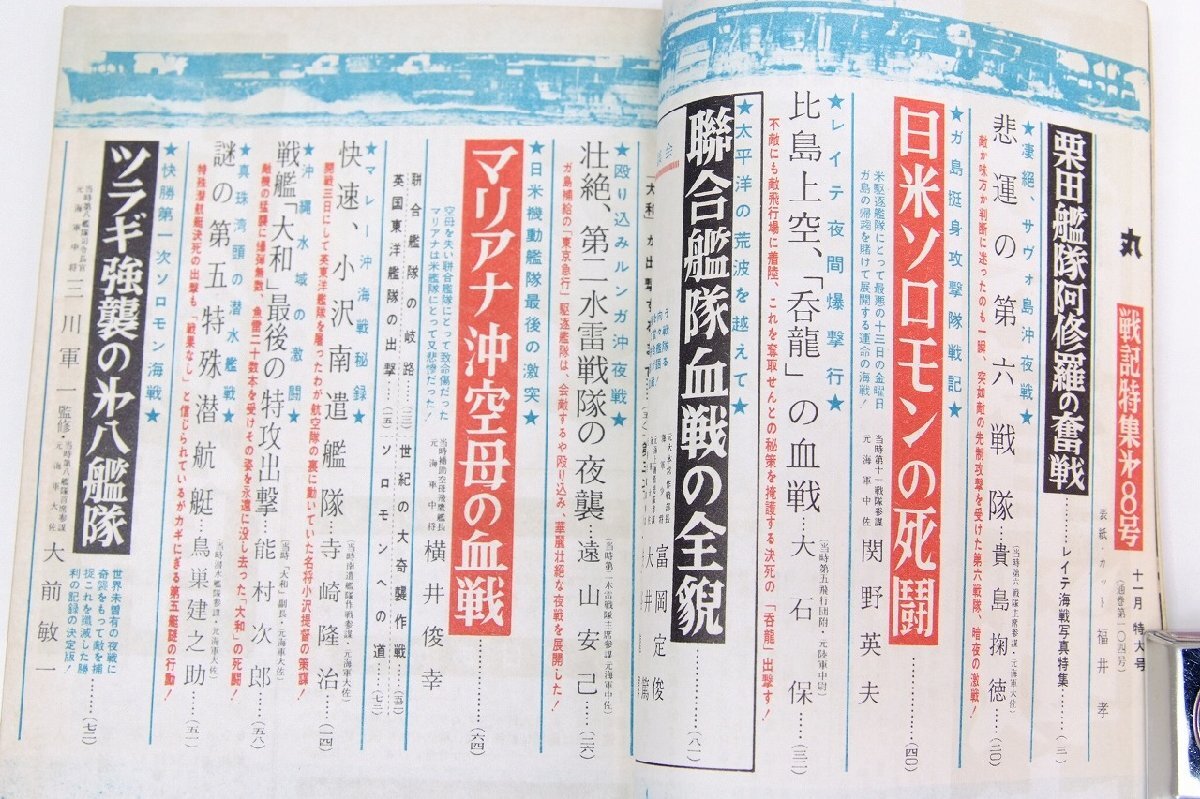 丸 戦記特集第8号
十一月特大号
（通巻第一〇四号）
表紙・カット 福井孝
栗田艦隊阿修羅の奮戦
……レイテ海戦写真特集……（一）
★凄絶、サヴォ島沖夜戦★
敵か味方か判断に迷ったのも一瞬、突如敵の先制攻撃を受けた第六戦隊、暗夜の激戦！
悲運の第六戦隊
（当時第六戦隊主席参謀・元海軍大佐）
貴島掬徳……（二〇）
★ガ島挺身攻撃隊戦記★
日米ソロモンの死闘
米駆逐艦隊にとって最悪の十三日の金曜日
ガ島の帰趨を賭けて展開する運命の海戦！
当時第十一戦隊参謀
元海軍中佐
関野英夫
……（四〇）
★レイテ夜間爆撃行★
比島上空、「呑龍」の血戦
（当時第五飛行団附・元陸軍中尉）
大石保……（三二）
不敵にも敵飛行場に着陸、これを奪取せんとの秘策を掩護する決死の「呑龍」出撃す！
★太平洋の荒波を越えて★
聯合艦隊血戦の全貌
……（八一）
富岡定俊
大井篤
★殴り込みルンガ沖夜戦★
壮絶、第二水雷戦隊の夜襲
（当時第二水雷戦隊主席参謀・元海軍中佐）
遠山安己……（二六）
ガ島補給の「東京急行」駆逐艦隊は、会敵するや殴り込み、華麗壮絶な夜戦を展開した！
★日米機動艦隊最後の激突★
マリアナ沖空母の血戦
空母を失い聯合艦隊にとって致命傷だった
マリアナは米艦隊にとって又悲惨だった
元海軍中将
横井俊幸
……（六四）
聯合艦隊の岐路…（二三） 世紀の大奇襲作戦…（五〇）
英国東洋艦隊の出撃…（五一） ソロモンへの道…（七二）
★マレー沖海戦秘録★
快速、小沢南遣艦隊
（当時南遣艦隊作戦参謀・元海軍大佐）
寺崎隆治……（一四）
開戦三日にして英東洋艦隊を屠ったわが航空隊の裏に動いていた名将小沢提督の策謀！
★沖縄水域の激闘★
戦艦「大和」最後の特攻出撃
（当時「大和」副長・元海軍大佐）
能村次郎……（五八）
敵機の猛襲に爆弾無数、魚雷二十数本を受けその姿を永遠に没し去った「大和」の死闘！
★真珠湾頭の潜水艦戦★
謎の第五特殊潜航艇
（当時潜水艦隊参謀・元海軍大佐）
鳥巣建之助…（五一）
特殊潜航艇決死の出撃も「戦果なし」と信じられているがカギにぎる第五艇謎の行動！
★快勝第一次ソロモン海戦★
ツラギ強襲の第八艦隊
世界未曽有の夜戦に
奇襲をもって敵を捕
捉これを殲滅した勝
利の記録の決定版！
……（七二）
当時第八艦隊司令長官
元海軍中将
三川軍一
監修・
当時第八艦隊首席参謀
元海軍大佐
大前敏一